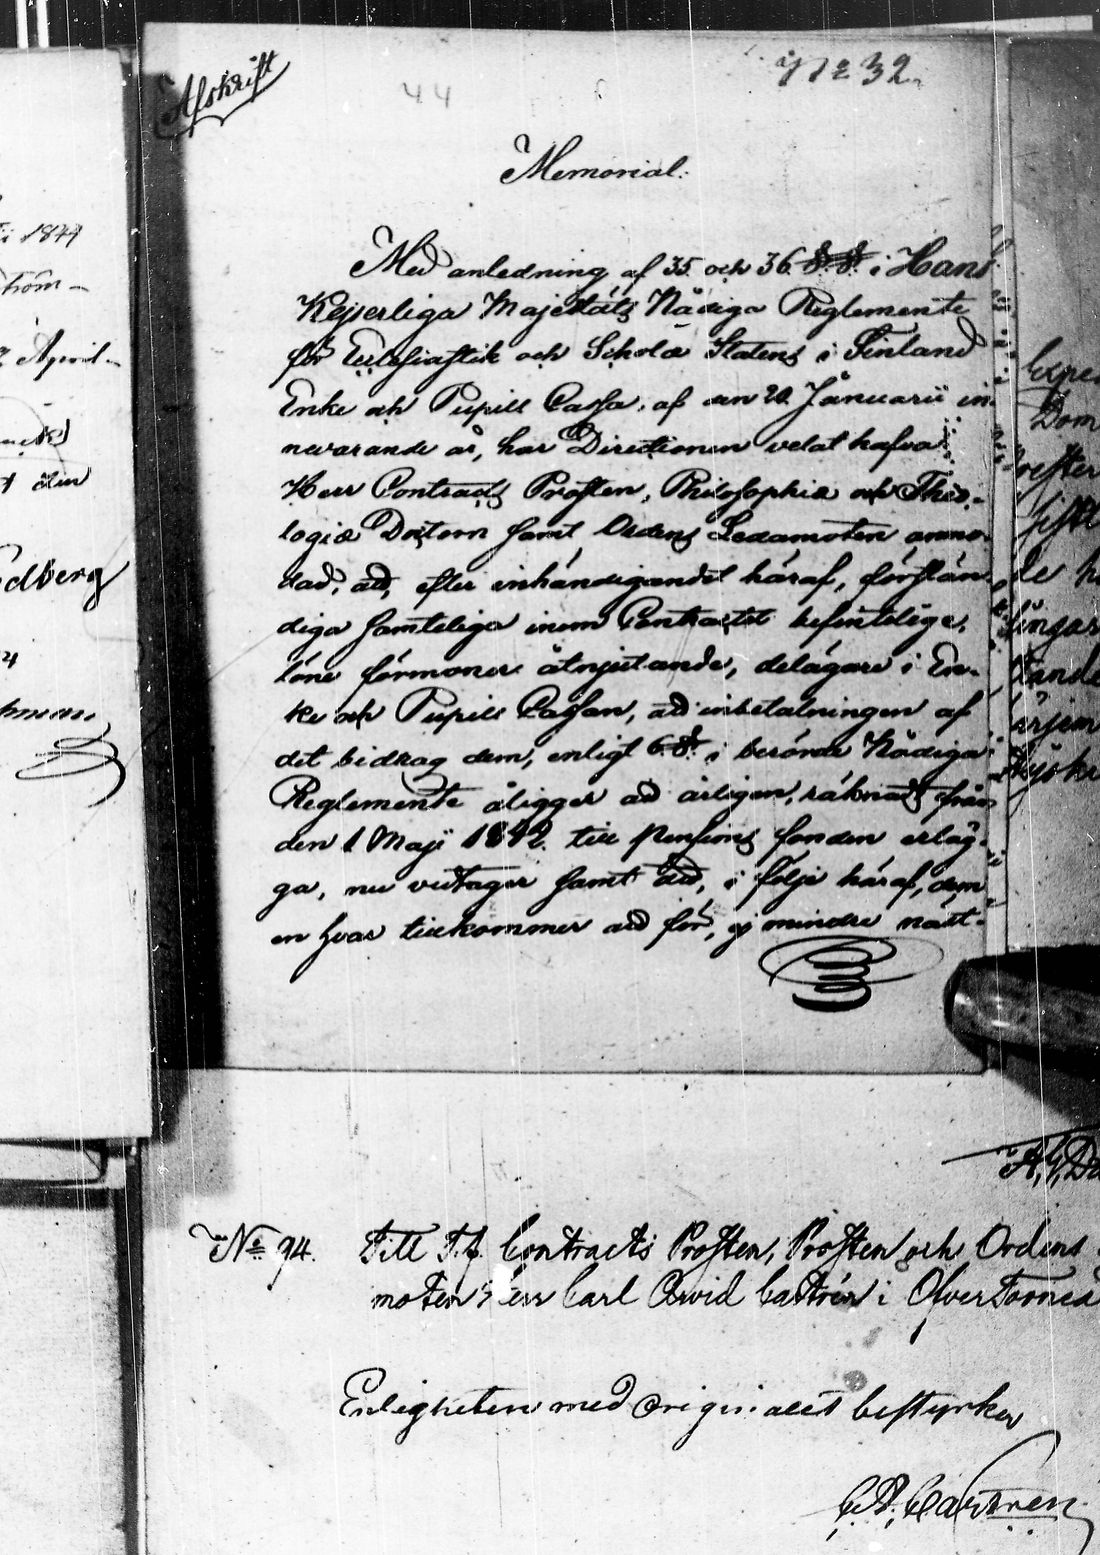 Afskrift
44
No 32.
Memorial:
Med anledning af 35. och 36. §.§. i Hans
Kejserliga Majestäts Nådiga Reglemente
för Ecclesiastik och Schole Statens i Finland
Enke och Pupill Cassa, af den 20. Januarii in-
nevarande år, har Directionen velat hafva
Herr Contracts Prosten, Philosophiæ och Theo-
logiæ Doctorn samt Ordens Ledamoten anmo-
dad, att, efter inhändigandet häraf, förstän-
diga samteliga inom Contractet befintelige,
löne förmoner åtnjutande, delägare i En-
ke och Pupill Cassan, att inbetalningen af
det bidrag dem, enligt 6 §. i berörde Nådiga
Reglemente åligger att årligen, räknadt från
den 1 Maji 1842. till pensions fonden erläg-
ga, nu vidtager samt att, i följe häraf, dem
en hvar tillkommer att för, ej mindre näst-
No 94. Till T.f. Contracts Prosten, Prosten och Ordens
moten Herr Carl Arvid Castrén i Öfver Torneå
Enligheten med originalet bestyrker
C. A. Castren
ti 1844
ström
April
den
edberg
Expe
Dom
efter
de h
lingar
tande
ärjem